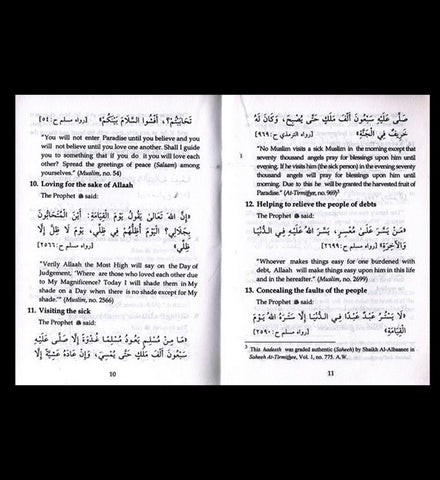 تَحَابَبْتُمْ؟، أَفْشُوا السَّلَامَ بَيْنَكُمْ» [رواه مسلم ح:٥٤]
"You will not enter Paradise until you believe and you
will not believe until you love one another. Shall I guide
you to something that if you do it you will love each
other? Spread the greetings of peace (Salaam) among
yourselves." (Muslim, no. 54)
10. Loving for the sake of Allaah
The Prophet ﷺ said:
«إِنَّ اللهَ تَعَالَىٰ يَقُولُ يَوْمَ الْقِيَامَةِ: أَيْنَ الْمُتَحَابُّونَ
بِجَلَالِي؟ الْيَوْمَ أُظِلُّهُمْ فِي ظِلِّي، يَوْمَ لَا ظِلَّ إِلَّا
ظِلِّي» [رواه مسلم ح:٢٥٦٦]
"Verily Allaah the Most High will say on the Day of
Judgement, 'Where are those who loved each other due
to My Magnificence? Today I will shade them in My
shade on a Day when there is no shade except for My
shade.'" (Muslim, no. 2566)
11. Visiting the sick
The Prophet ﷺ said:
«مَا مِنْ مُسْلِمٍ يَعُودُ مُسْلِمًا غُدْوَةً إِلَّا صَلَّى عَلَيْهِ
سَبْعُونَ أَلْفَ مَلَكٍ حَتَّى يُمْسِيَ، وَإِنْ عَادَهُ عَشِيَّةً إِلَّا
10
صَلَّى عَلَيْهِ سَبْعُونَ أَلْفَ مَلَكٍ حَتَّى يُصْبِحَ، وَكَانَ لَهُ
خَرِيفٌ فِي الْجَنَّةِ» [رواه الترمذي ح:٩٦٩]
"No Muslim visits a sick Muslim in the morning except that
seventy thousand angels pray for blessings upon him until
evening. If he visits him (the sick person) in the evening seventy
thousand angels will pray for blessings upon him until
morning. Due to this he will be granted the harvested fruit of
Paradise." (At-Tirmidhee, no. 969)3
12. Helping to relieve the people of debts
The Prophet ﷺ said:
«مَنْ يَسَّرَ عَلَىٰ مُعْسِرٍ، يَسَّرَ اللهُ عَلَيْهِ فِي الدُّنْيَا
وَالْآخِرَةِ» [رواه مسلم ح:٢٦٩٩]
"Whoever makes things easy for one burdened with
debt, Allaah will make things easy upon him in this life
and in the hereafter." (Muslim, no. 2699)
13. Concealing the faults of the people
The Prophet ﷺ said:
«لَا يَسْتُرُ عَبْدٌ عَبْدًا فِي الدُّنْيَا إِلَّا سَتَرَهُ اللهُ يَوْمَ
الْقِيَامَةِ» [رواه مسلم ح:٢٥٩٠]
3 This hadeeth was graded authentic (Saheeh) by Shaikh Al-Albaanee in
Saheeh At-Tirmidhee, Vol. 1, no. 775. A.W.
11